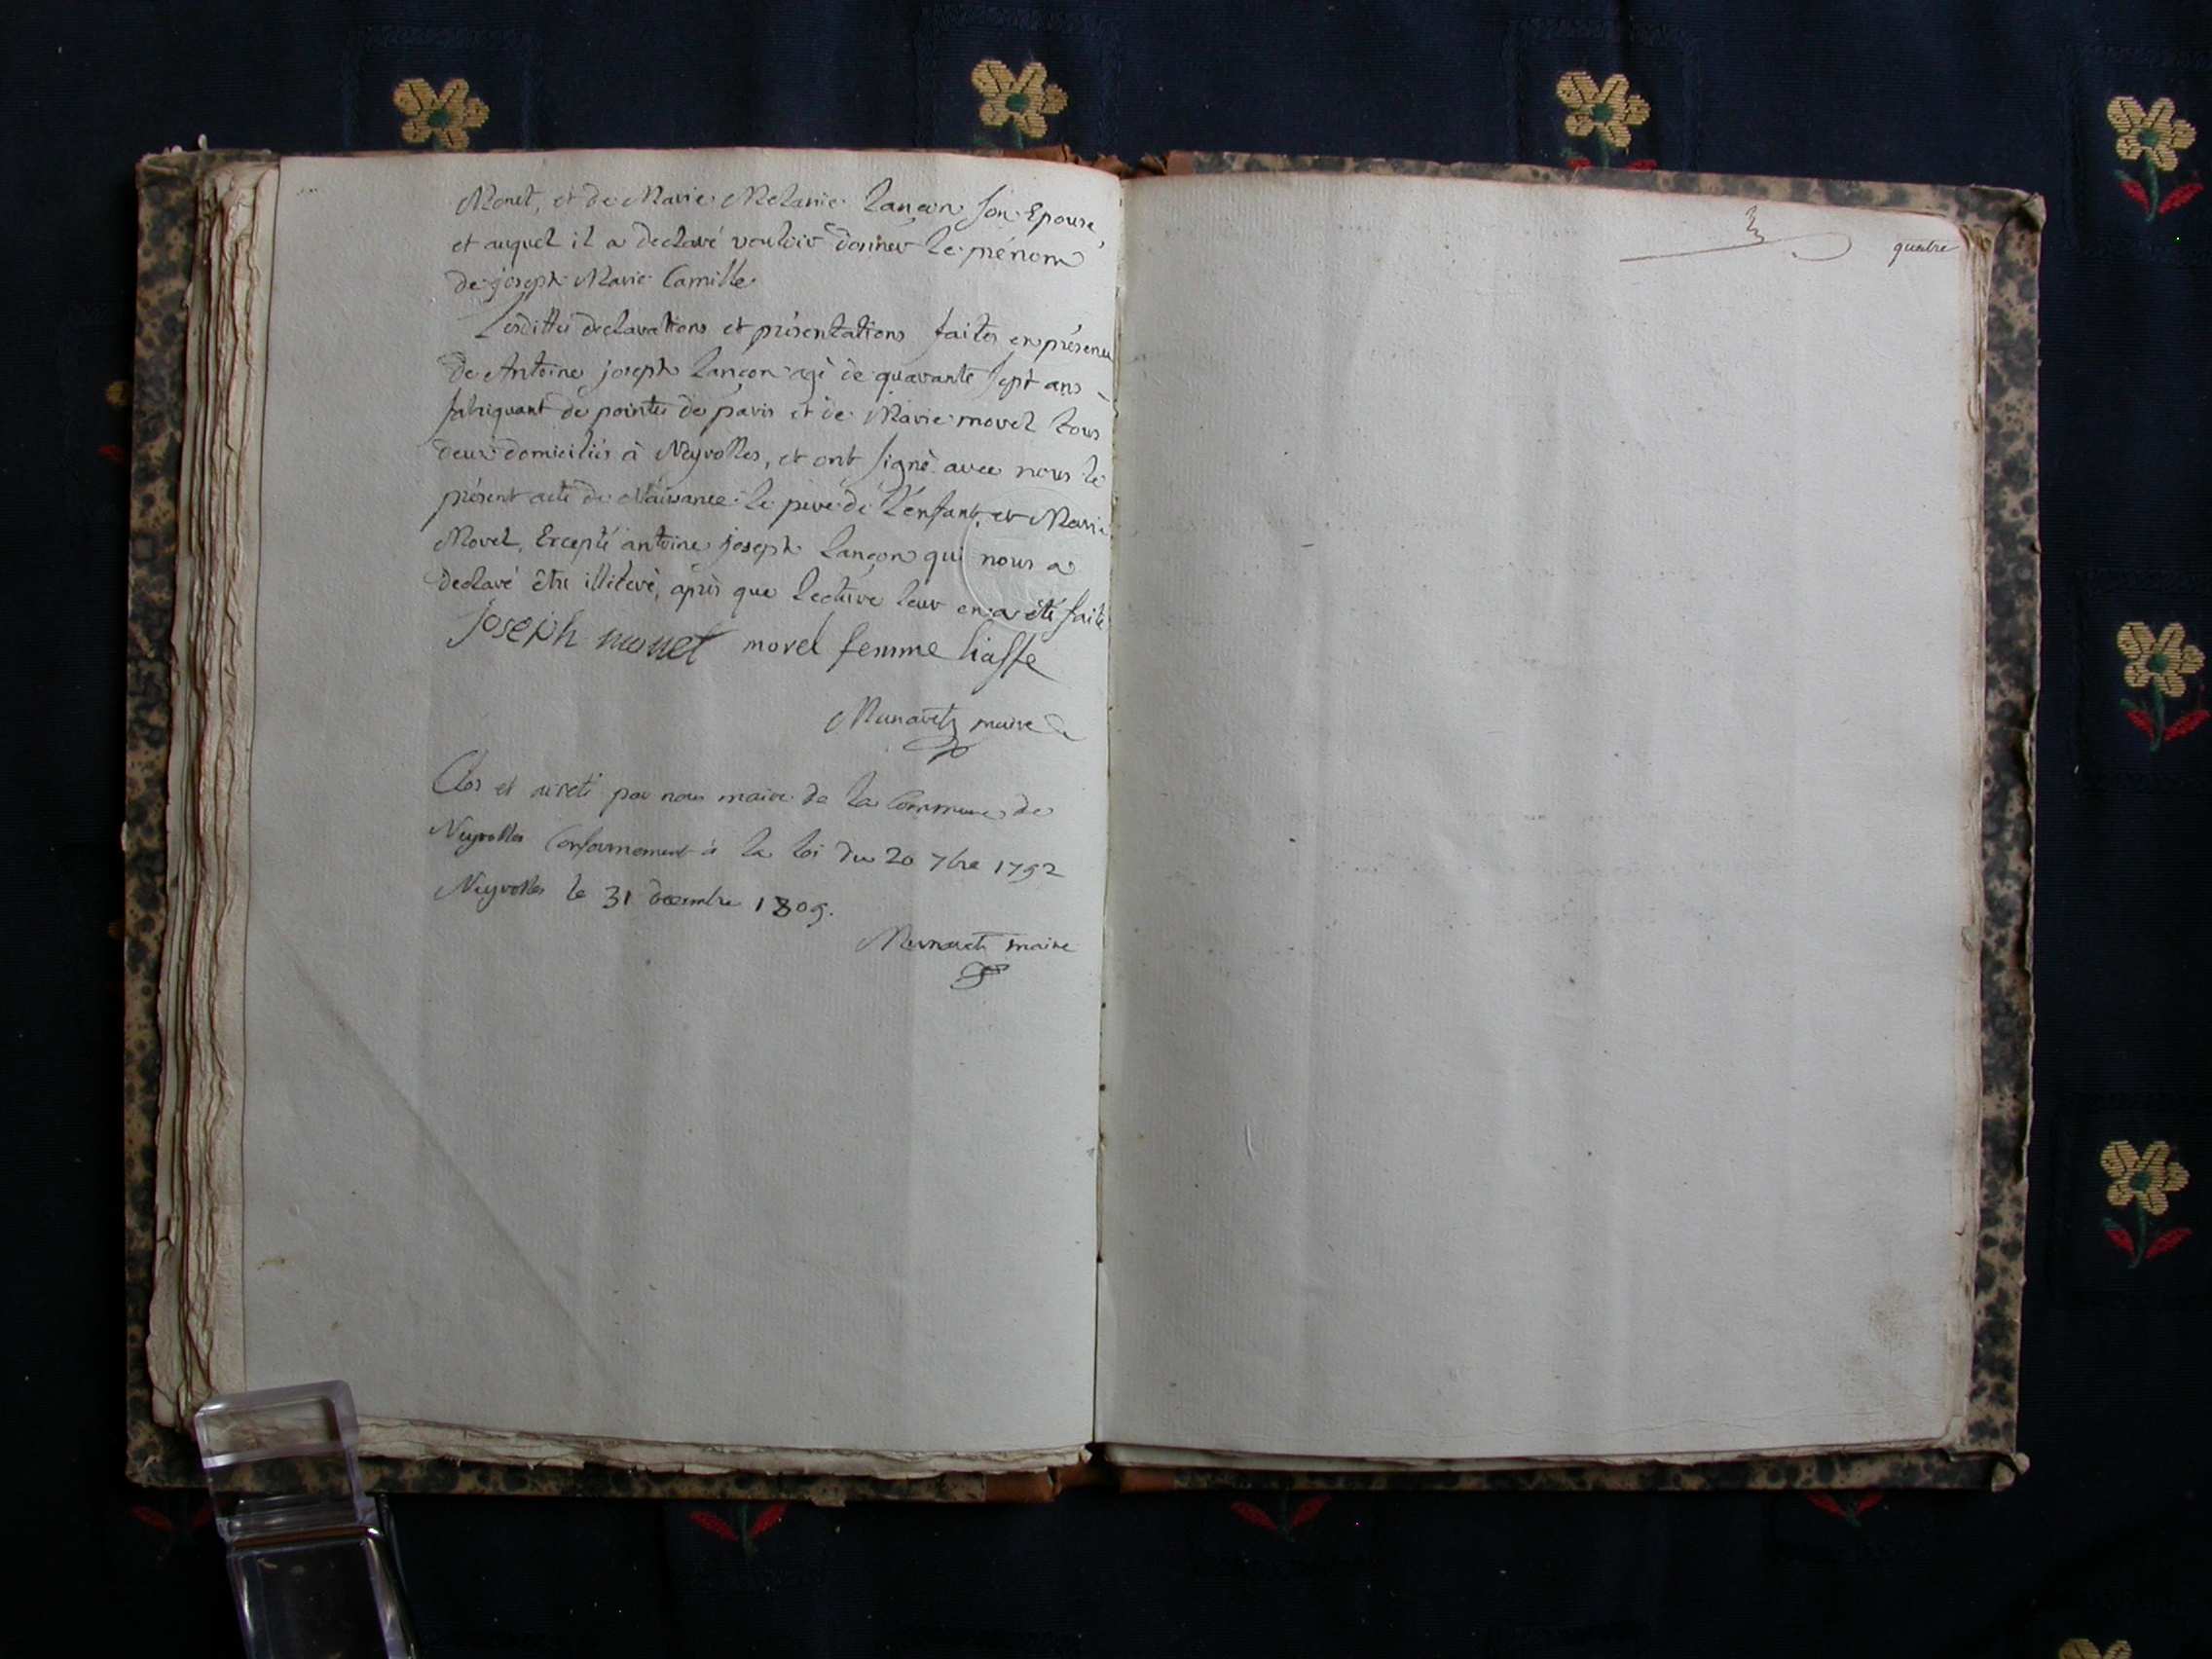 Monet, et de Marie Melanie Lançon son Epouse,
et auquel il a declaré vouloir donner le prénom
de joseph Marie Camille
Lesdittes declarations et présentations faites en présence
de Antoine joseph Lançon agé de quarante sept ans –
fabriquant de pointes de paris et de Marie morel tous
deux domiciliés à Neyrolles, et ont signé avec nous le
présent acte de Naissance le pere de l'enfant, et Marie
Morel, Excepté antoine joseph Lançon qui nous a
declaré être illiteré, après que lecture leur en a été faite
joseph monet morel femme liasse
maire
Clos et arreté par nous maire de la Commune de
Neyrolles Conformement à la loi du 20 7bre 1792
Neyrolles le 31 decembre 1809.
maire
quatre